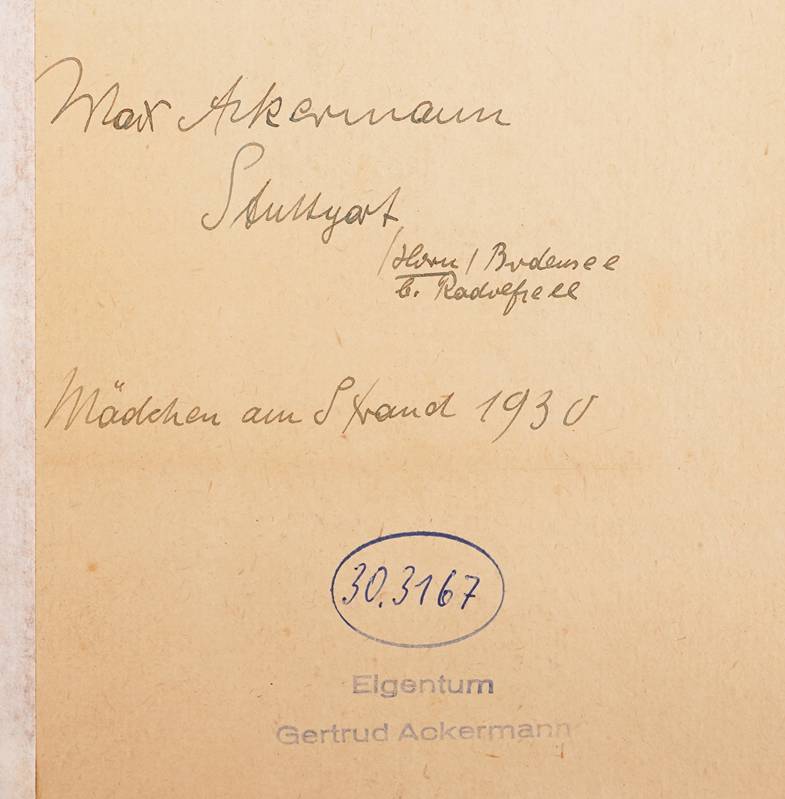 Max Ackermann
Stuttgart
/Horn/ Bodensee
b. Radolfzell
Mädchen am Strand 1930
30.3167
Eigentum
Gertrud Ackermann